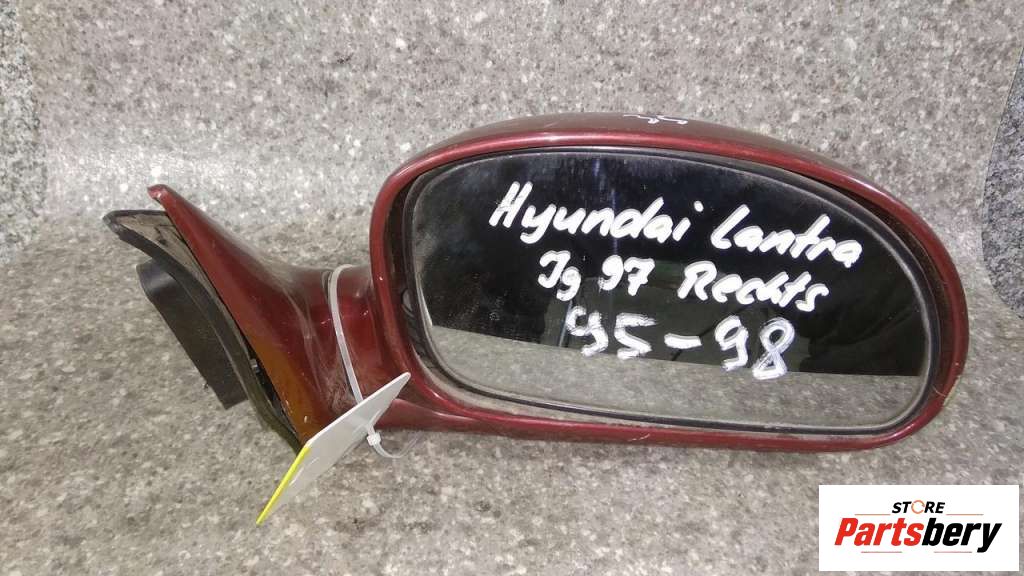 Hyundai Lantra
Jg 97 Rechts
95-98
STORE
Partsbery